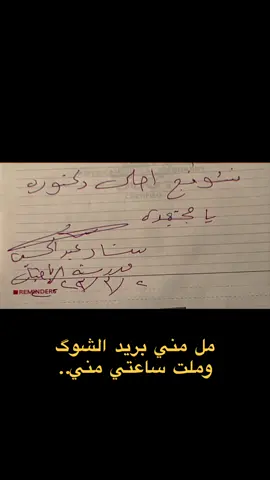 نتوقع احلى دكتوره
يا مجتهده
ستار عبد الحسن
مدرسة
REMINDERS
مل مني بريد الشوگ
وملت ساعتي مني..